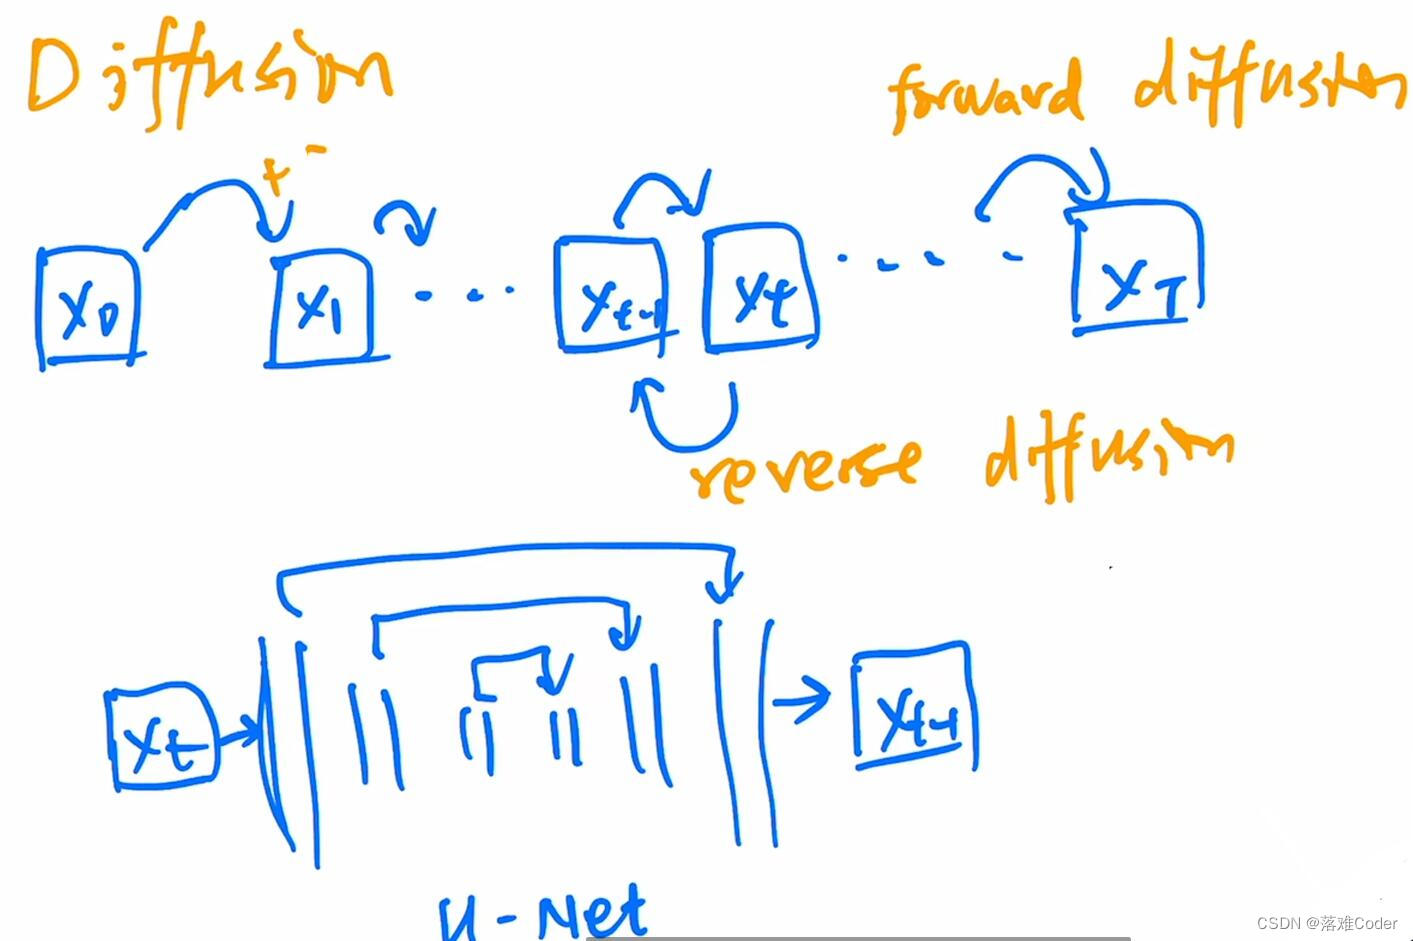 Diffusion
forward diffusion
+ -
X0 X1 ... Xt-1 Xt .... XT
reverse diffusion
Xt Xt-1
U-Net
CSDN @落难Coder